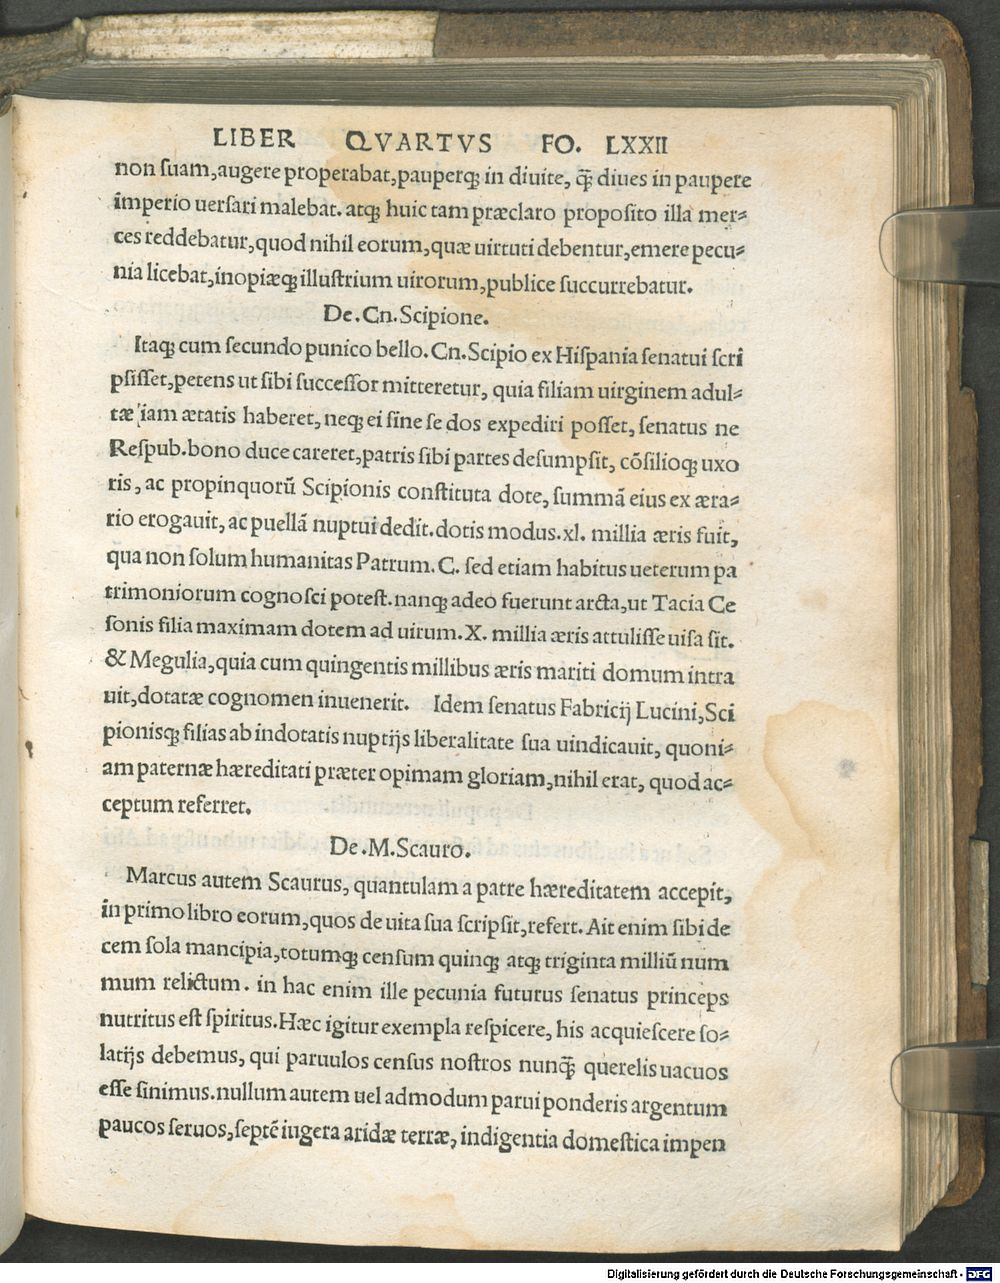 LIBER QVARTVS FO. LXXII
non ſuam,augere properabat,pauperq́; in diuite, q̄̃ diues in paupere
imperio uerſari malebat. atq́; huic tam præclaro propoſito illa mer⸗
ces reddebatur,quod nihil eorum,quæ uirtuti debentur,emere pecu⸗
nia licebat,inopiæq́; illuſtrium uirorum,publice ſuccurrebatur.
De.Cn.Scipione.
Itaq́; cum ſecundo punico bello.Cn.Scipio ex Hiſpania ſenatui ſcri
pſiſſet,petens ut ſibi ſucceſſor mitteretur, quia filiam uirginem adul⸗
tæ iam ætatis haberet, neq́; ei ſine ſe dos expediri poſſet, ſenatus ne
Reſpub.bono duce careret,patris ſibi partes deſumpſit, cõſilioq́; uxo
ris, ac propinquorũ Scipionis conſtituta dote, ſummã eius ex æra⸗
rio erogauit, ac puellã nuptui dedit.dotis modus.xl. millia æris fuit,
qua non ſolum humanitas Patrum.C. ſed etiam habitus ueterum pa
trimoniorum cognoſci poteſt.nanq́; adeo fuerunt arcta,ut Tacia Ce
ſonis filia maximam dotem ad uirum.X. millia æris attuliſſe uiſa ſit.
& Megulia,quia cum quingentis millibus æris mariti domum intra
uit,dotatæ cognomen inuenerit. Idem ſenatus Fabricij Lucini,Sci
pionisq́; filias ab indotatis nuptijs liberalitate ſua uindicauit, quoni⸗
am paternæ hæreditati præter opimam gloriam,nihil erat, quod ac⸗
ceptum referret.
De.M.Scauro.
Marcus autem Scaurus, quantulam a patre hæreditatem accepit,
in primo libro eorum,quos de uita ſua ſcripſit,refert. Ait enim ſibi de
cem ſola mancipia,totumq́; cenſum quinq́; atq́; triginta milliũ num
mum relictum. in hac enim ille pecunia futurus ſenatus princeps
nutritus eſt ſpiritus.Hæc igitur exempla reſpicere, his acquieſcere ſo⸗
latijs debemus, qui paruulos cenſus noſtros nunq̄̃ querelis uacuos
eſſe ſinimus.nullum autem uel admodum parui ponderis argentum
paucos ſeruos,ſeptẽ iugera aridæ terræ, indigentia domeſtica impen
Digitalisierung gefördert durch die Deutsche Forschungsgemeinschaft - DFG